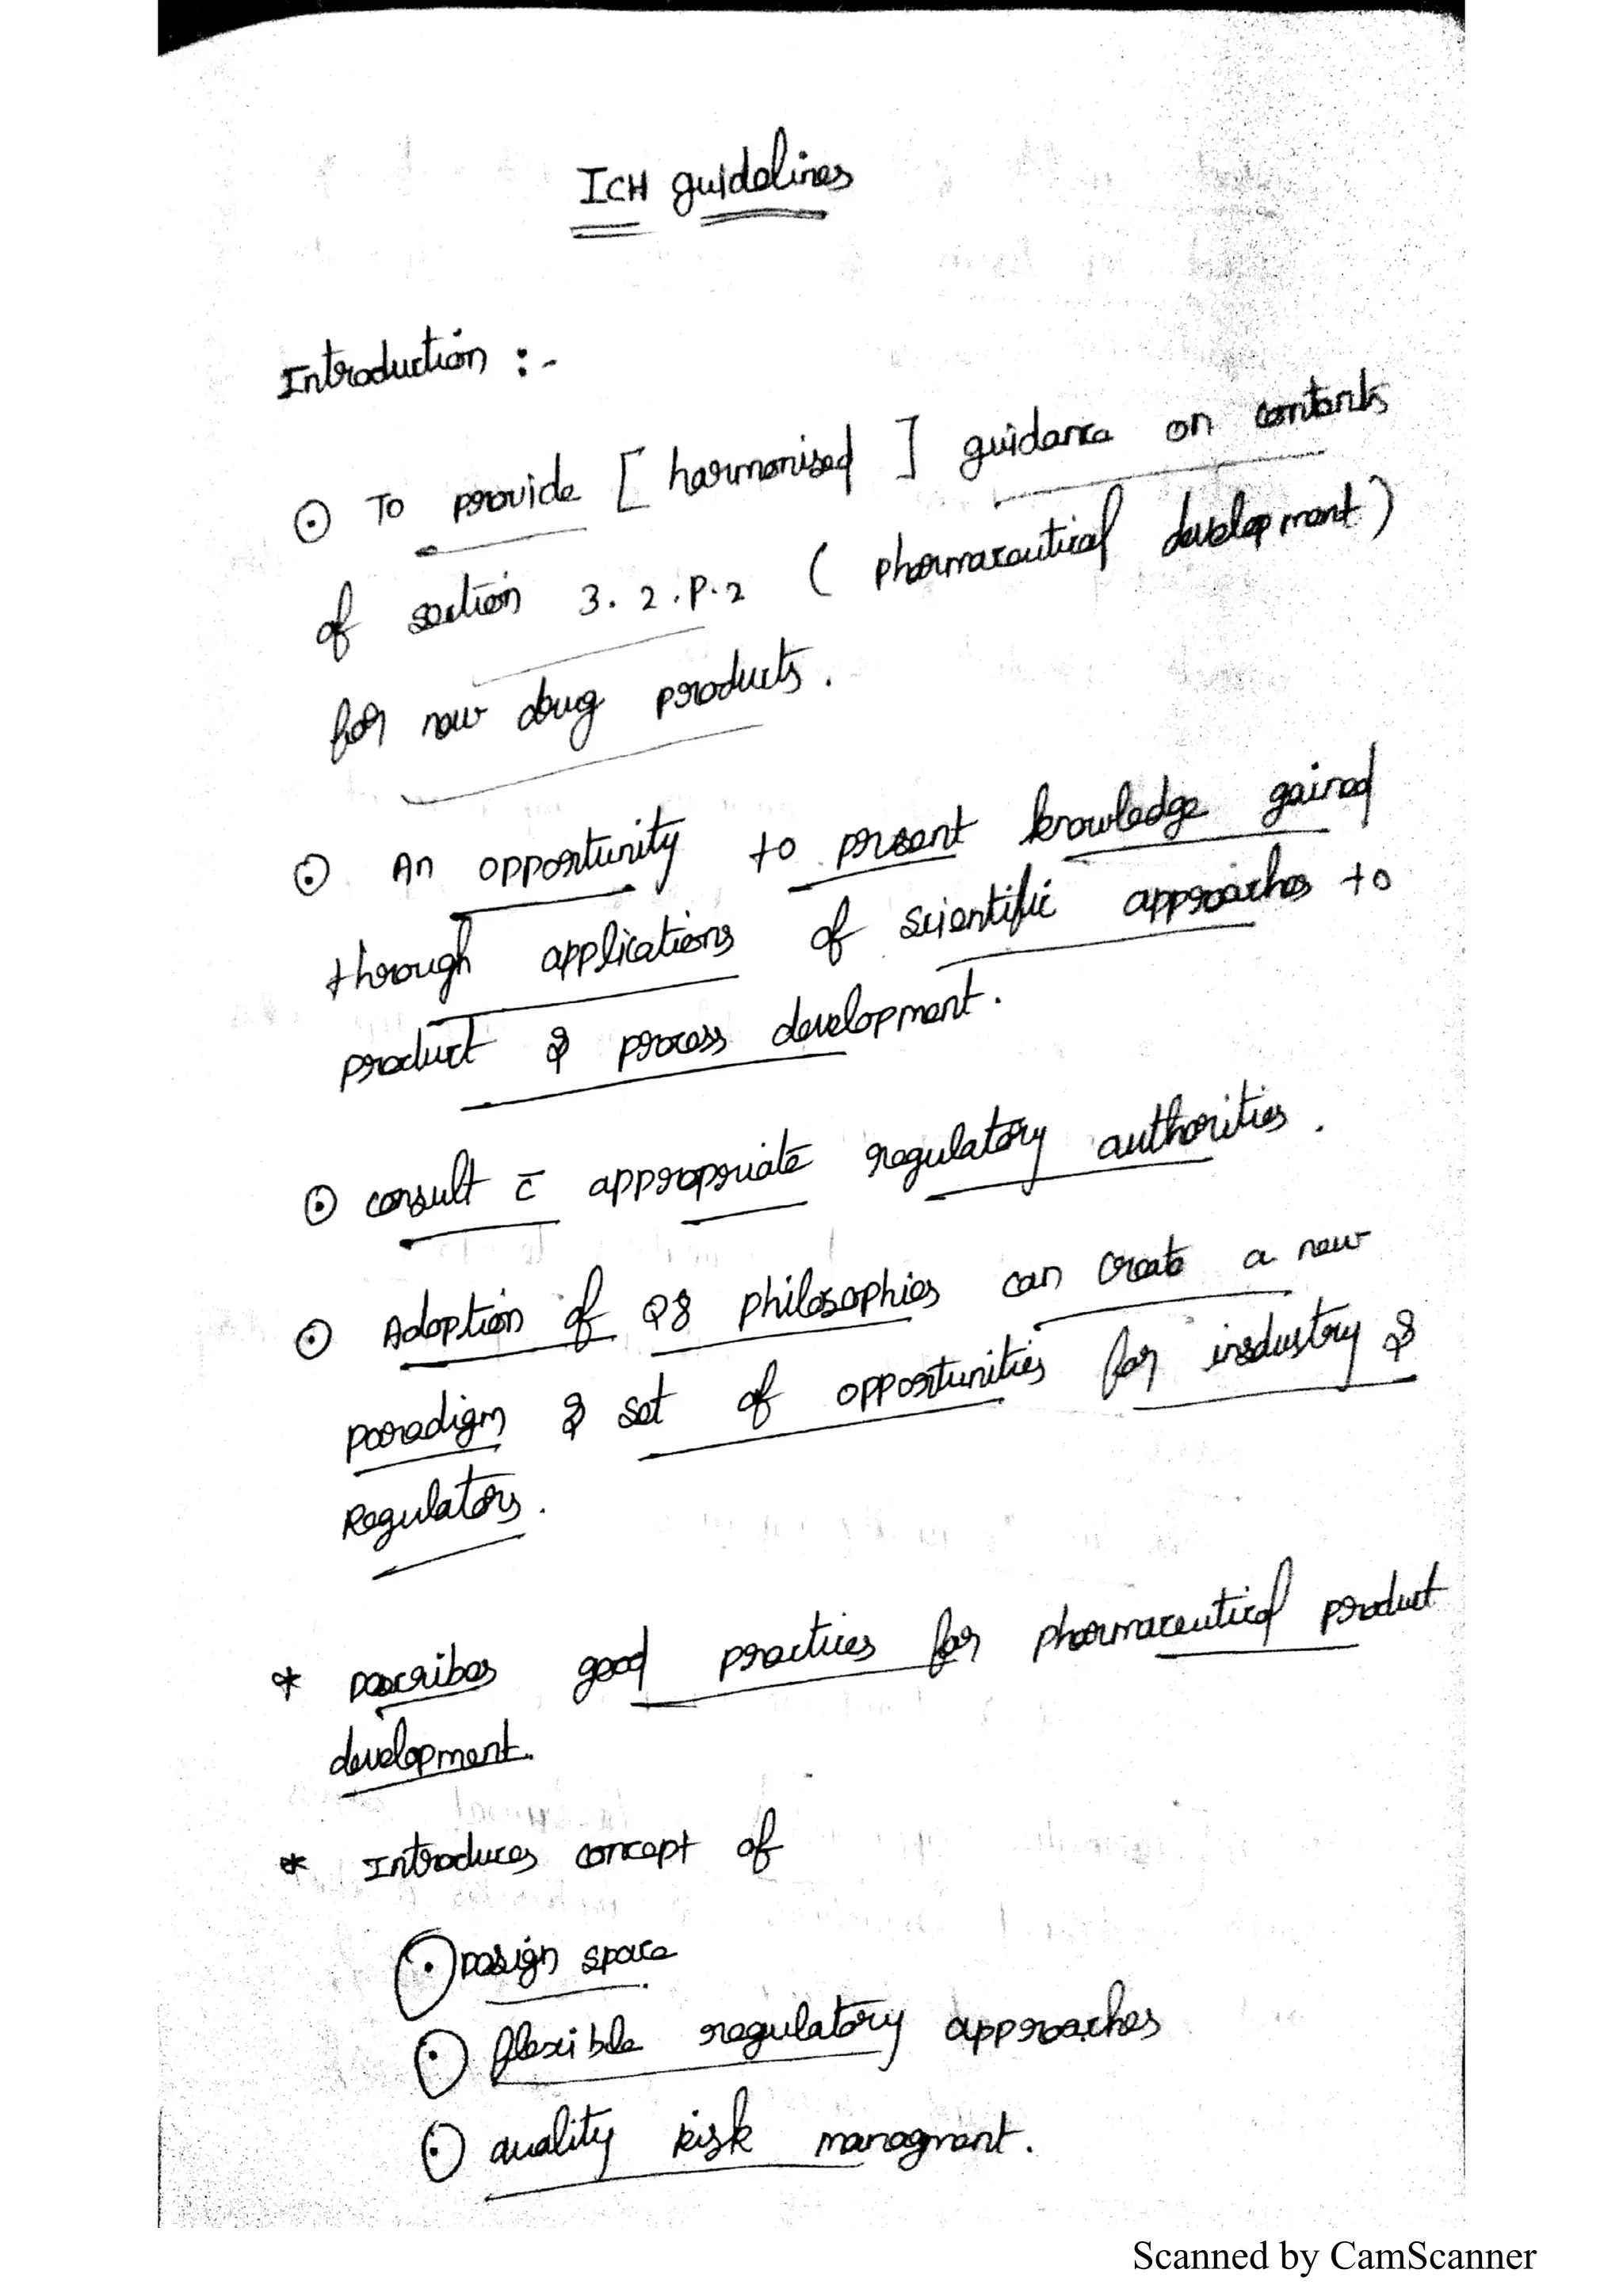 ICH guidelines
Introduction :-
⊙ To provide [ harmonised ] guidance on contents
of section 3.2.P.2 ( pharmaceutical development )
for new drug products.
⊙ An opportunity to present knowledge gained
through applications of scientific approaches to
product & process development.
⊙ consult c̄ appropriate regulatory authorities.
⊙ Adoption of Q8 philosophies can create a new
paradigm & set of opportunities for industry &
Regulators.
* Describes good practices for pharmaceutical product
development.
* Introduces concept of
⊙ Design space
⊙ flexible regulatory approaches
⊙ quality Risk managment.
Scanned by CamScanner